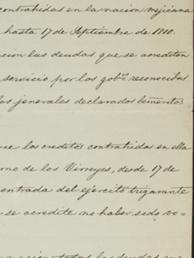 contrahidas en la nacion mejicana
hasta 17 de Septiembre de 1810.
cion las deudas que se acreditan
servicio por los gob.nos reconocidos
los jenerales declarados beneméri-
ue los creditos contrahidos en ella
rno de los Vireyes, desde 17 de
entrada del ejercito trigarante
se acredite no haber sido vo-